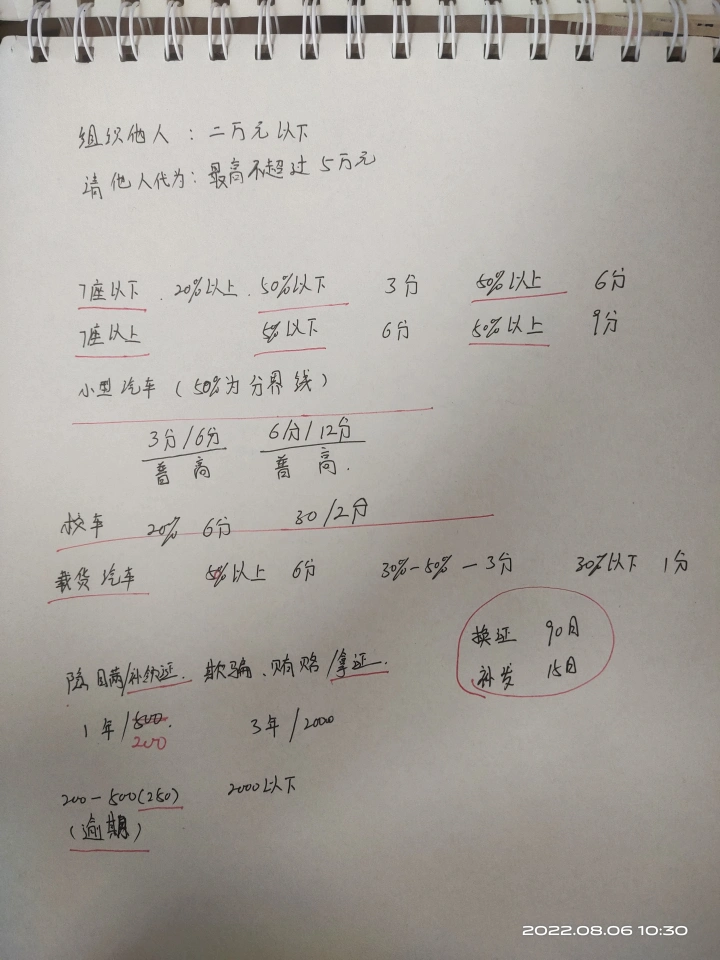 组织他人：二万元以下
请他人代为：最高不超过5万元
7座以下.20%以上.50%以下 3分 50%以上 6分
7座以上 5%以下 6分 50%以上 9分
小型汽车（50%为分界线）
3分/6分 6分/12分
普 高 普 高.
校车 20% 6分 30/2分
载货汽车 50%以上 6分 30%-50%－3分 30%以下 1分
换证 90日
补发 15日
隐瞒/补领证. 欺骗、贿赂/拿证.
1年/500. 3年/2000
200
200－500(250) 2000以下
（逾期）
2022.08.06 10:30